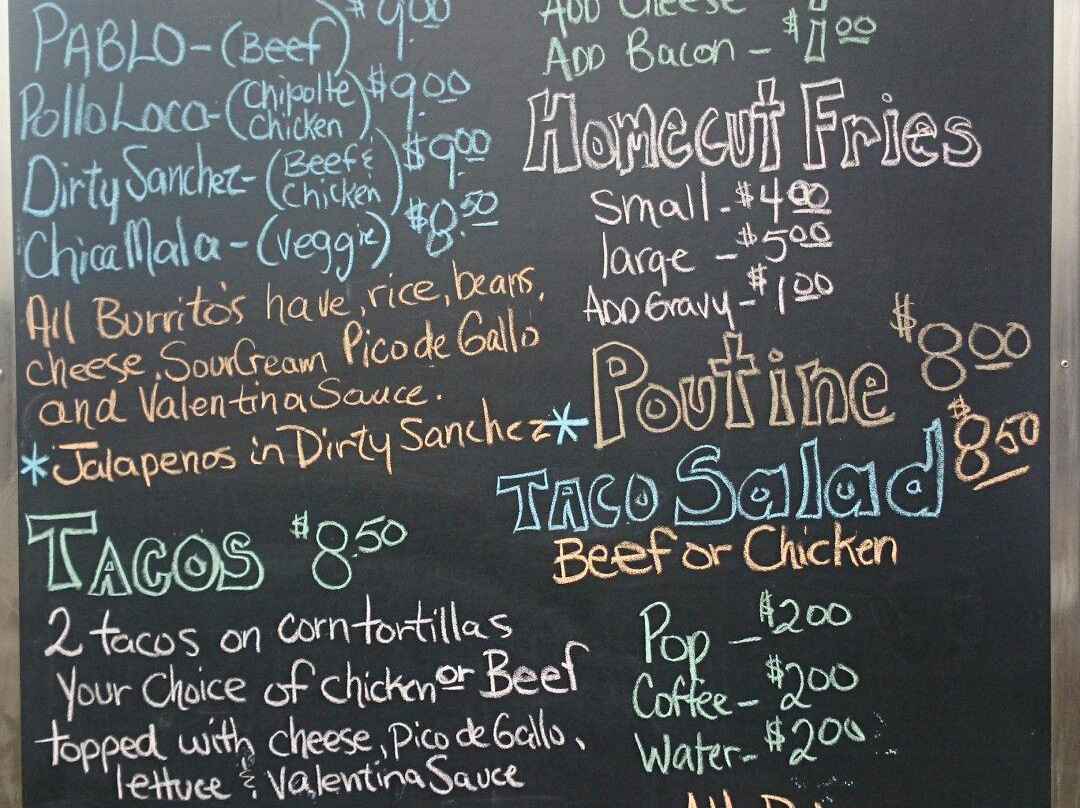 PABLO-(Beef) $9.00
Pollo Loco-(Chipolte Chicken) $9.00
Dirty Sanchez-(Beef & Chicken) $9.00
Chica Mala-(Veggie) $8.50
All Burrito's have, rice, beans,
cheese, Sour Cream Pico de Gallo
and Valentina Sauce.
*Jalapenos in Dirty Sanchez*
TACOS $8.50
2 tacos on corn tortillas
Your Choice of chicken or Beef
topped with cheese, Pico de Gallo,
lettuce & Valentina Sauce
ADD Cheese
ADD Bacon - $1.00
Homecut Fries
Small - $4.00
large - $5.00
ADD Gravy - $1.00
Poutine $8.00
TACO Salad $8.50
Beef or Chicken
Pop - $2.00
Coffee - $2.00
Water - $2.00